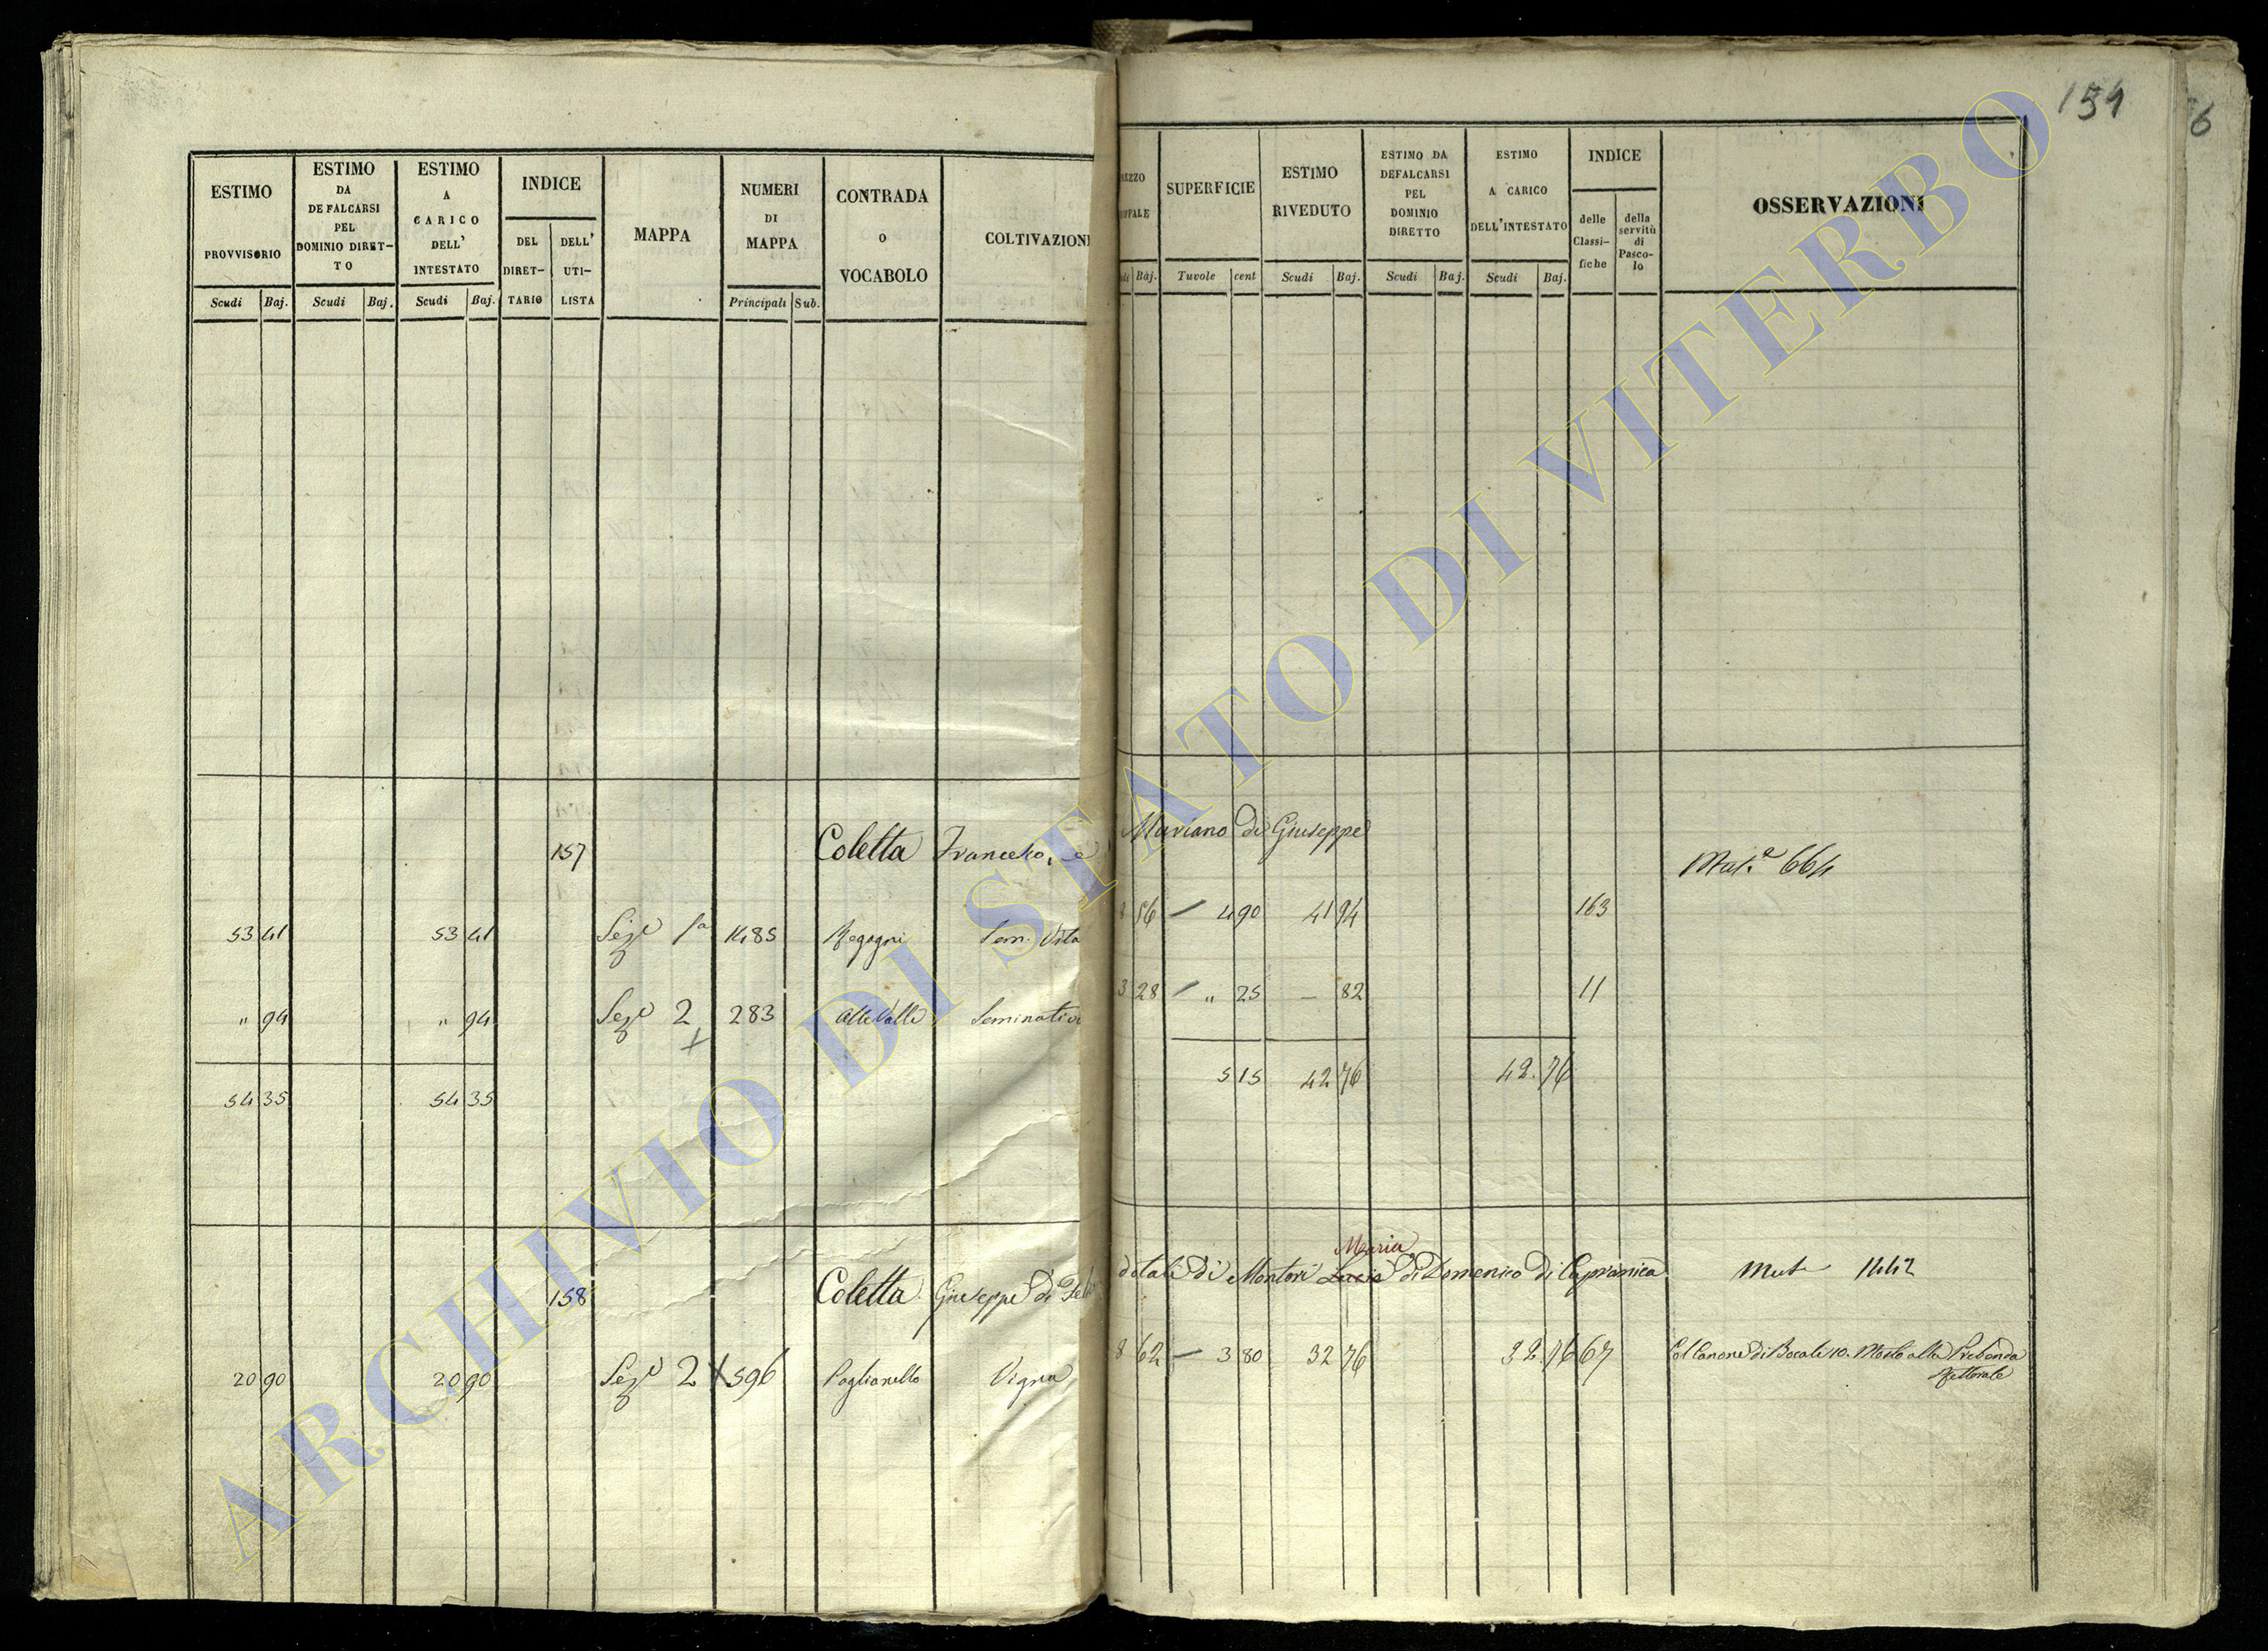 154
6
ESTIMO PROVVISORIO
Scudi Baj.
ESTIMO DA DEFALCARSI PEL DOMINIO DIRET-TO
Scudi Baj.
ESTIMO A CARICO DELL' INTESTATO
Scudi Baj.
INDICE
DEL DIRET-TARIO
DELL' UTI-LISTA
MAPPA
NUMERI DI MAPPA
Principali Sub.
CONTRADA O VOCABOLO
COLTIVAZION
SUPERFICIE
Tavole cent
ESTIMO RIVEDUTO
Scudi Baj.
ESTIMO DA DEFALCARSI PEL DOMINIO DIRETTO
Scudi Baj.
ESTIMO A CARICO DELL'INTESTATO
Scudi Baj.
INDICE
delle Classi-fiche
della servitù di Pasco-lo
OSSERVAZIONI
157 Coletta Francesco, e Mariano di Giuseppe
Mut.a 664
53 41 53 41 Sez.e 1a 1485 Sem. Vita 8 56 4 90 41 94 163
" 94 " 94 Sez.e 2 283 Alle Valli Seminativo 3 28 " 25 — 82 11
54 35 54 35 5 15 42 76 42 76
158 Coletta Giuseppe di dotali di Montori Lucia Maria di Domenico di Capranica Mut 1442
20 90 20 90 Sez.e 2 X 596 Paglianello Vigna 8 62 — 3 80 32 76 32 76 67 Col Canone di Bocali 10. Mosto alla Prebenda
Rettorale
ARCHIVIO DI STATO DI VITERBO